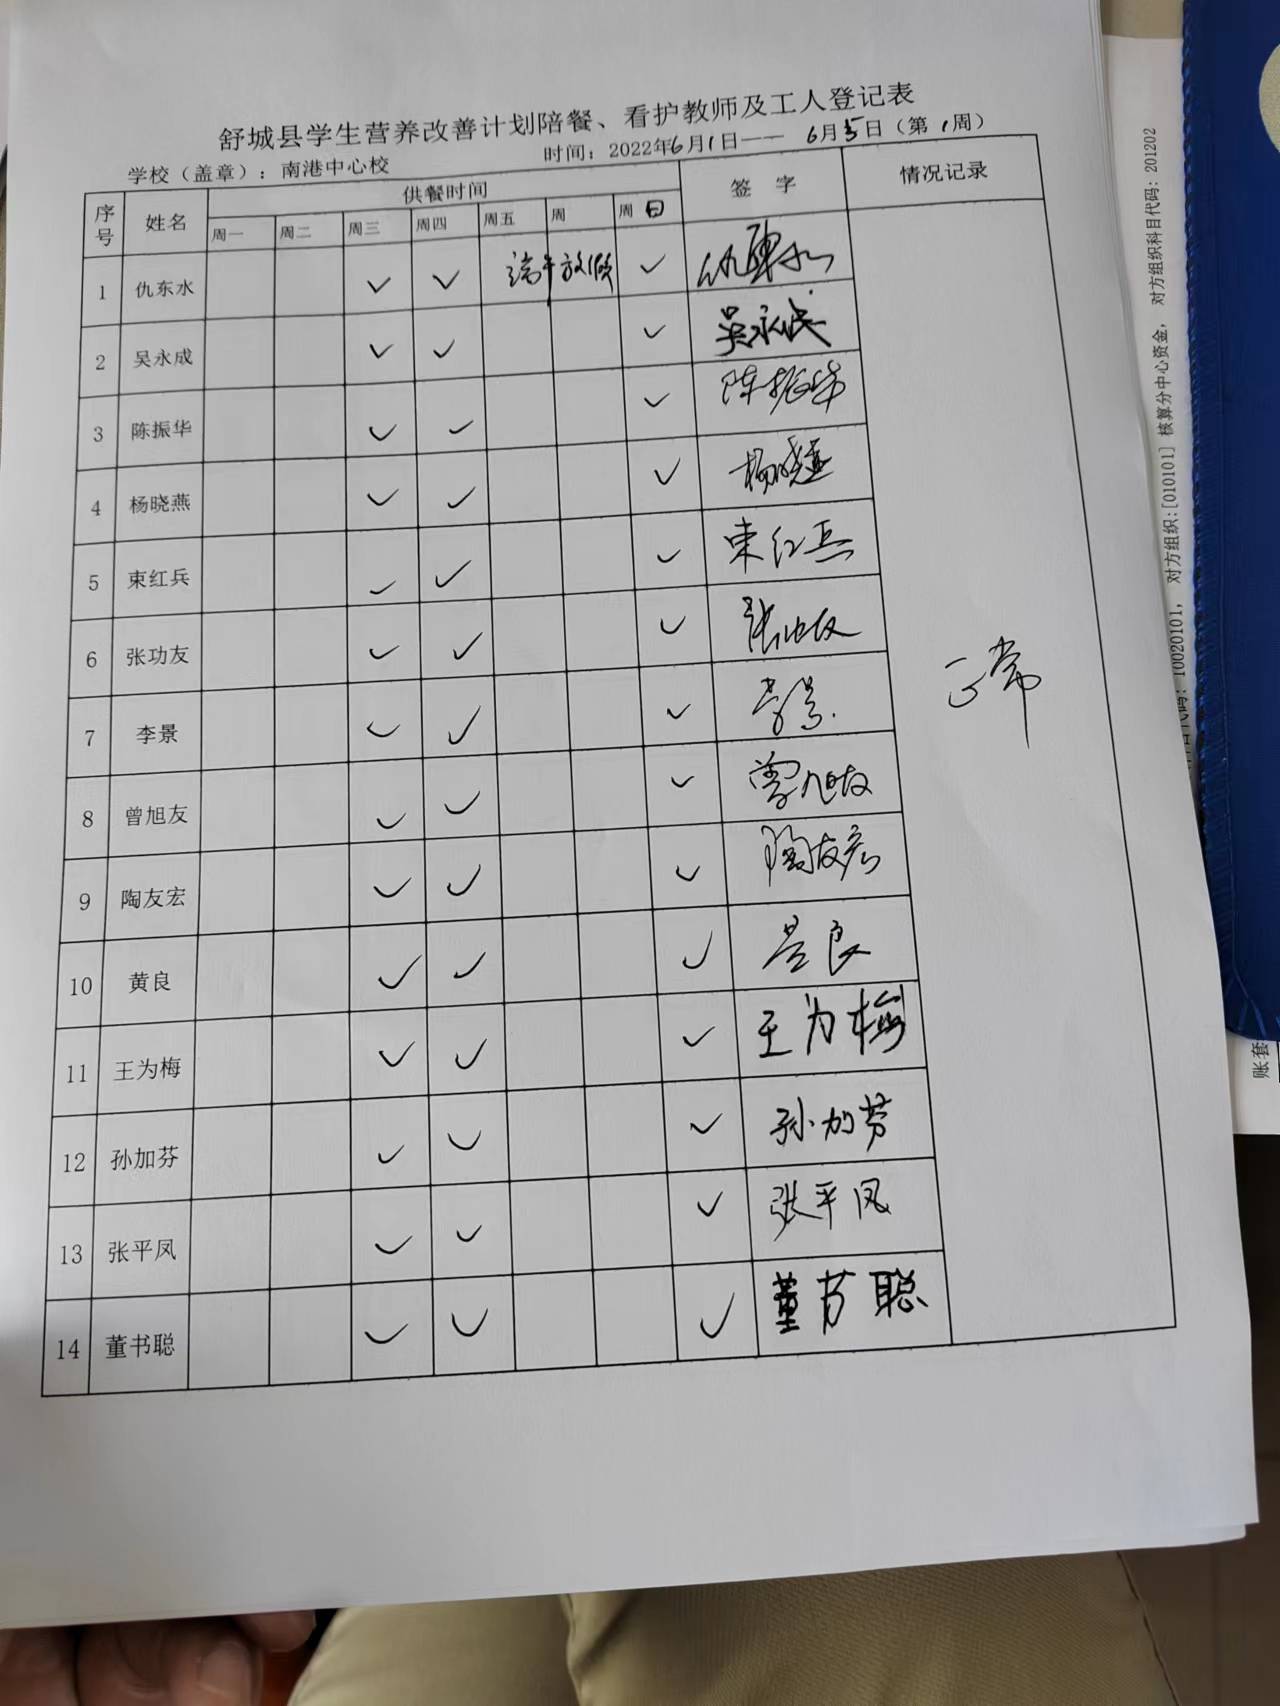 舒城县学生营养改善计划陪餐、看护教师及工人登记表
学校（盖章）：南港中心校 时间：2022年6月1日—— 6月5日（第1周）
序号 姓名 供餐时间 签 字 情况记录
周一 周二 周三 周四 周五 周 周日
1 仇东水 ✓ ✓ 端午放假 ✓ 仇东水
2 吴永成 ✓ ✓ ✓ 吴永成
3 陈振华 ✓ ✓ ✓ 陈振华
4 杨晓燕 ✓ ✓ ✓ 杨晓燕
5 束红兵 ✓ ✓ ✓ 束红兵
6 张功友 ✓ ✓ ✓ 张功友
正常
7 李景 ✓ ✓ ✓ 李景
8 曾旭友 ✓ ✓ ✓ 曾旭友
9 陶友宏 ✓ ✓ ✓ 陶友宏
10 黄良 ✓ ✓ ✓ 黄良
11 王为梅 ✓ ✓ ✓ 王为梅
12 孙加芬 ✓ ✓ ✓ 孙加芬
13 张平凤 ✓ ✓ ✓ 张平凤
14 董书聪 ✓ ✓ ✓ 董书聪
对方组织科目代码：201202
对方组织：[010101] 核算分中心资金，
10020101，
账套